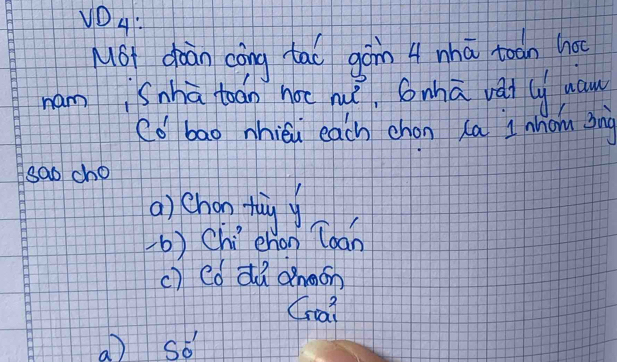 VD4:
Một đoàn công tác gồm 4 nhà toán học
nam, 5 nhà toán học nữ, 6 nhà vật lý nam
Có bao nhiêu cách chọn ra 1 nhóm 3 ng
sao cho
a) Chọn tùy ý
b) Chỉ chọn Toán
c) Có đủ môn
Giải
a) Số